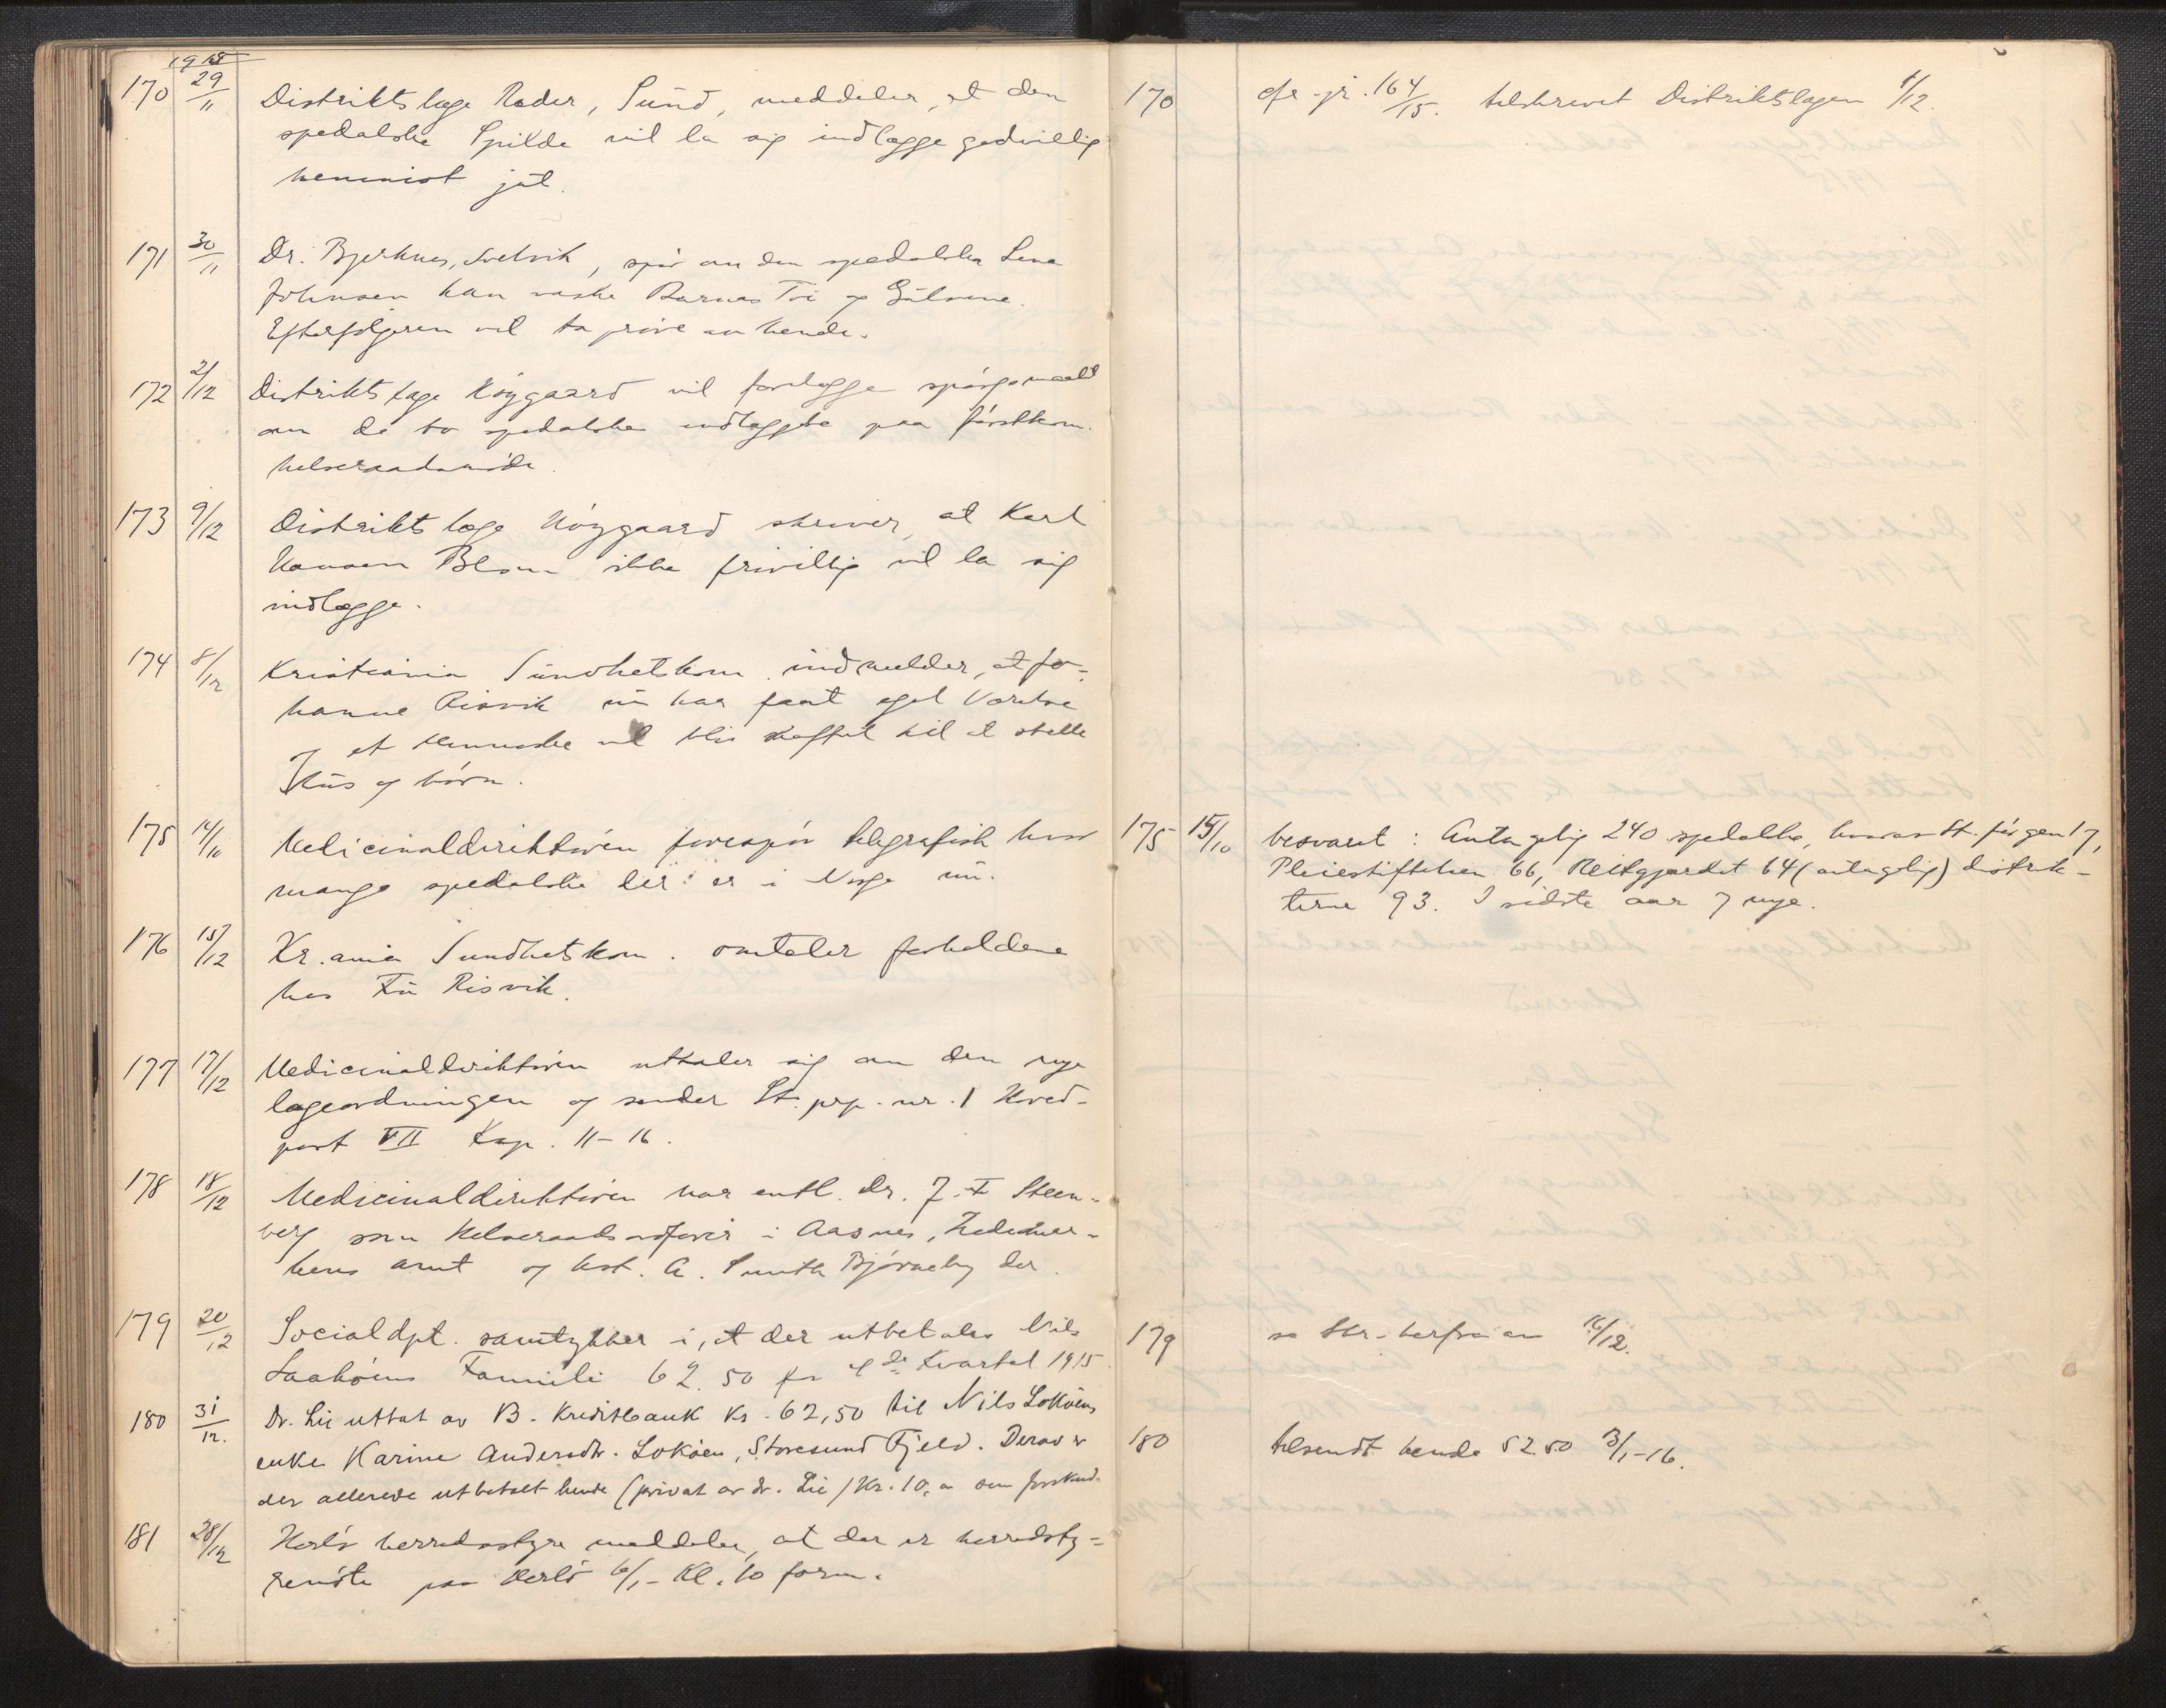 1915
170 29/11 Distriktslæge Rader, Sund, meddeler, at den
spedalske Spilde vil la sig indlægge godvillig
henimot jul.
171 30/11 Dr. Bjerknes, Svelvik, spør om den spedalske Lena
Johnsen kan vaske Barnas Tøi og Gulvene.
Efterfølgeren vil ta prøve av hende.
172 2/12 Distriktslæge Höygaard vil forelægge spørgsmaalet
om de to spedalske indlæggelse paa førstkom.
helseraadsmøde.
173 9/12 Distriktslæge Höygaard skriver, at Karl
Hansen Blom ikke frivillig vil la sig
indlægge.
174 8/12 Kristiania Sundhetskom. indmelder, at Jo-
hanne Risvik nu har faat eget Værelse
og et Menneske vil bli skaffet til at stelle
Hus og børn.
175 14/10 Medicinaldirektøren forespør telegrafisk hvor
mange spedalske der er i Norge nu.
176 15/12 Kr.ania Sundhetskom. omtaler forholdene
hos Fru Risvik.
177 17/12 Medicinaldirektøren uttaler sig om den nye
lægeordningen og sender St. prp. nr. 1 Hoved-
post VII Kap. 11-16.
178 18/12 Medicinaldirektøren har entl. Dr. J. F. Steen-
berg som Helseraadsordfører i Aasnes, Hedemar-
kens amt og kst. A. Smith Bjørneby der.
179 20/12 Socialdpt. samtykker i, at der utbetales Nils
Laakøens Familie 62.50 for 4de Kvartal 1915.
180 31/12. Dr. Lie uttat av B. Kreditbank Kr. 62,50 til Nils Lokøens
enke Karine Andersdtr. Lokøen, Storesund Fjeld. Derav er
der allerede utbetalt hende (privat av dr. Lie) Kr. 10,- som forskud.
181 28/12 Herlø herredsstyre meddeler, at der er herredsty-
remøte paa Herlø 6/1 - Kl. 10 form.
170 cfr. jr. 164/15. tilskrevet Distriktslægen 1/12.
175 15/10 besvart: Antagelig 240 spedalske, hvorav St. Jørgen 17,
Pleiestiftelsen 66, Reitgjærdet 64 (antagelig) distrik-
terne 93. I sidste aar 7 nye.
179 se Skr. herfra av 16/12.
180 tilsendt hende 52.50 3/1-16.